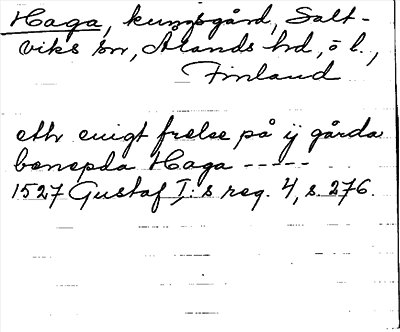 Haga, kungsgård, Salt-
viks sn, Ålands hd, ö l.,
Finland
ett evigt frelse på ij gårda
benepda Haga -----
1527 Gustaf I:s reg. 4, s. 276.